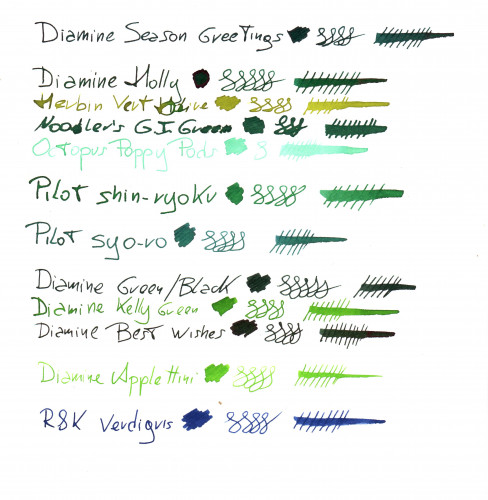 Diamine Season Greetings
Diamine Holly
Herbin Vert Olive
Noodler's G.I. Green
Octopus Poppy Pods
Pilot shin-ryoku
Pilot syo-ro
Diamine Green/Black
Diamine Kelly Green
Diamine Best Wishes
Diamine Appletini
R&K Verdigris